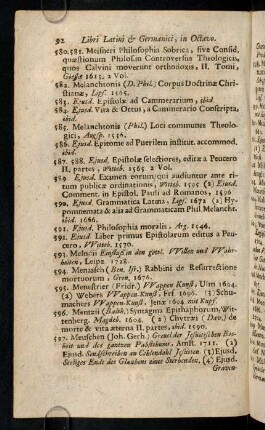 92 Libri Latini & Germanici, in Octavo.
580.581. Meisneri Philosophia Sobrica, sive Consid.
quæstionum Philosoph. in Controversiis Theologicis,
quos Calvini moverunt orthodoxis, II. Tomi,
Giessæ 1613. 2 Vol.
582. Melanchtonis (D. Phil.) Corpus Doctrinæ Christianæ,
Lips. 1565.
583. Ejusd. Epistolæ ad Camerarium, ibid.
584. Ejusd. Vita & Ortus, a Camerario Conscripta,
ibid.
585. Melanchtonis (Phil.) Loci communes Theologici,
August. 1556.
586. Ejusd. Epitome ad Puerilem institut. accommod.
ibid.
587. 588. Ejusd. Epistolæ selectiores, editæ a Peucero
II. partes, Witteb. 1565 2 Vol.
589. Ejusd. Examen eorum, qui audiuntur ante ritum
publicæ ordinationis, Witteb. 1505 (2) Ejusd.
Comment. in Epistol. Pauli ad Romanos, 1506
590. Ejusd. Grammatica Latina, Lips. 1672 (2) Hypomnemata
& alia ad Grammaticam Phil. Melancht.
ibid. 1666.
591. Ejusd. Philosophia moralis, Arg. 1546.
592. Ejusd. Liber primus Epistolarum editus a Peucero,
VVitteb. 1570.
593. Melncii Einfluß in den göttl. VVillen und VVahrheiten,
Leipz. 1718.
594. Menasseh (Ben. Isr.) Rabbini de Resurrectione
mortuorum, Gron. 1676.
595. Menestrier (Fridr.) VVappen Kunst, Ulm 1694.
(2) Webers VVappen Kunst, Frf. 1696. (3) Schumachers
VVappen Kunst, Jena 1694 mit Kupf.
596. Mentzii (Balth.) Syntagma Epithaphorum, Wittenberg.
Magdeb. 1604. (2) Chytræi (Dav.) de
morte & vita æterna II. partes, ibid. 1590.
597. Meuschen (Joh. Gerh.) Greuel der Jesuitischen Bosheit
und des gantzen Pabsthums. Arnst. 1711. (2)
Ejusd. Sendschreiben an Cohlendahl Jesuiten (3) Ejusd.
Seeliges Ende des Glaubens eines Sterbenden. (4) Ejusd.